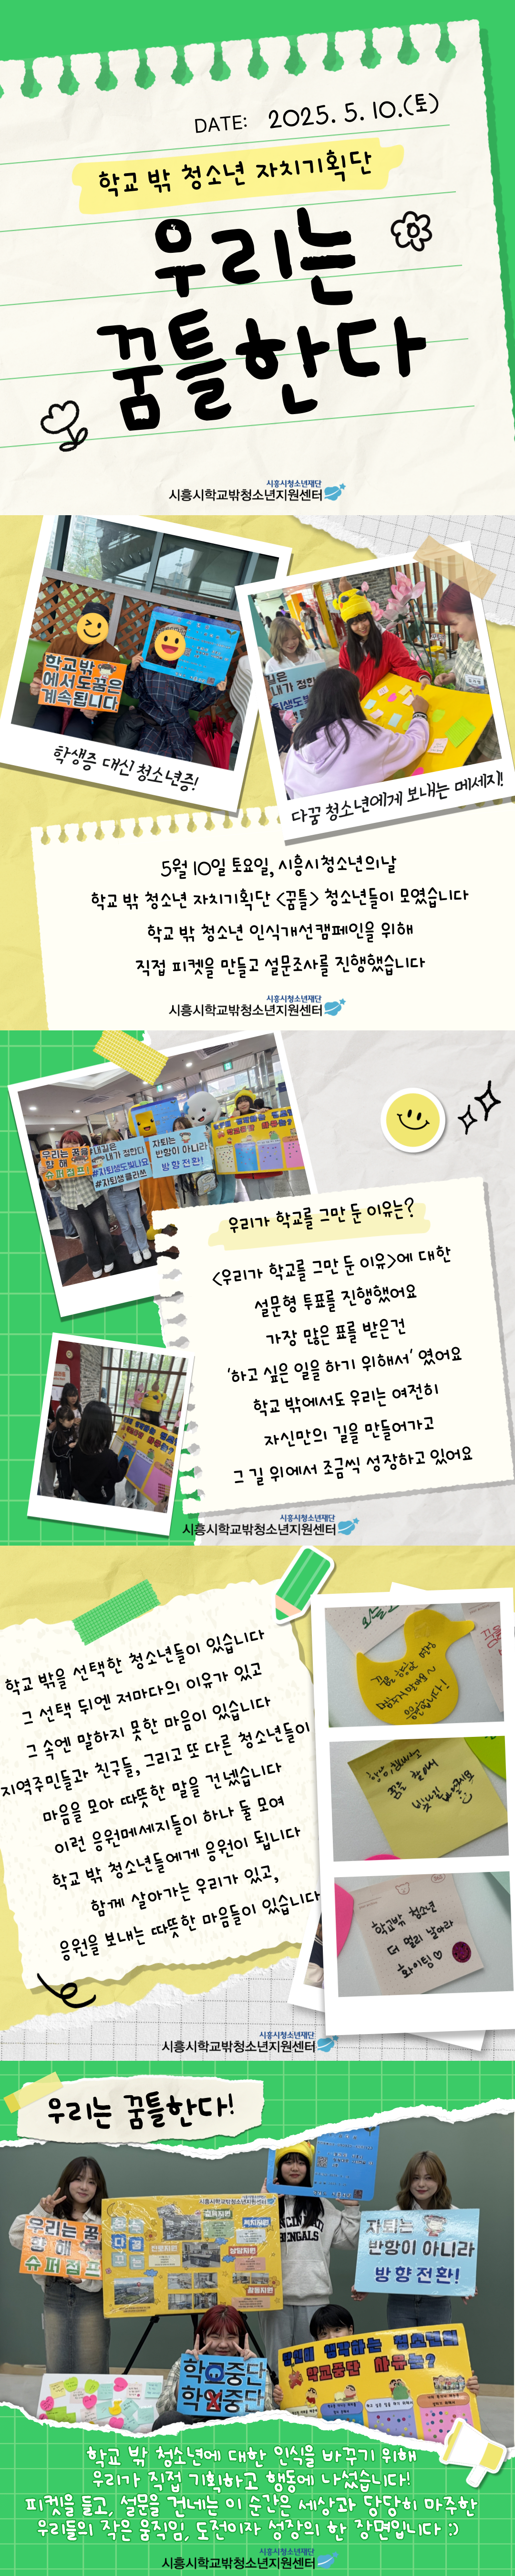 DATE: 2025. 5. 10.(토)
학교 밖 청소년 자치기획단
우리는
꿈틀한다
시흥시청소년재단
시흥시학교밖청소년지원센터
학교밖
에서도 꿈은
계속됩니다
학생증 대신 청소년증!
다꿈 청소년에게 보내는 메세지!
5월 10일 토요일, 시흥시청소년의날
학교 밖 청소년 자치기획단 <꿈틀> 청소년들이 모였습니다
학교 밖 청소년 인식개선캠페인을 위해
직접 피켓을 만들고 설문조사를 진행했습니다
시흥시청소년재단
시흥시학교밖청소년지원센터
우리는 꿈을
향해
슈퍼점프!
내길은
내가 정한다
#자퇴생도빛나요
#자퇴생클라쓰
자퇴는
반항이 아니라
방향 전환!
우리가 학교를 그만 둔 이유는?
<우리가 학교를 그만 둔 이유>에 대한
설문형 투표를 진행했어요
가장 많은 표를 받은건
'하고 싶은 일을 하기 위해서' 였어요
학교 밖에서도 우리는 여전히
자신만의 길을 만들어가고
그 길 위에서 조금씩 성장하고 있어요
시흥시청소년재단
시흥시학교밖청소년지원센터
학교 밖을 선택한 청소년들이 있습니다
그 선택 뒤엔 저마다의 이유가 있고
그 속엔 말하지 못한 마음이 있습니다
지역주민들과 친구들, 그리고 또 다른 청소년들이
마음을 모아 따뜻한 말을 건넸습니다
이런 응원메세지들이 하나 둘 모여
학교 밖 청소년들에게 응원이 됩니다
함께 살아가는 우리가 있고,
응원을 보내는 따뜻한 마음들이 있습니다
꿈을 향한 여정
멈추지 말아요~
응원합니다!
꿈을 찾아서
학교밖 청소년
더 멀리 날아라
화이팅♡
시흥시청소년재단
시흥시학교밖청소년지원센터
우리는 꿈틀한다!
우리는 꿈
향해
슈퍼점프
시흥시학교밖청소년지원센터
자퇴는
반항이 아니라
방향 전환!
BENGALS
학교중단
학업중단
당신이 생각하는 청소년의
학교중단 사유는?
학교 밖 청소년에 대한 인식을 바꾸기 위해
우리가 직접 기획하고 행동에 나섰습니다!
피켓을 들고, 설문을 건네는 이 순간은 세상과 당당히 마주한
우리들의 작은 움직임, 도전이자 성장의 한 장면입니다 :)
시흥시청소년재단
시흥시학교밖청소년지원센터